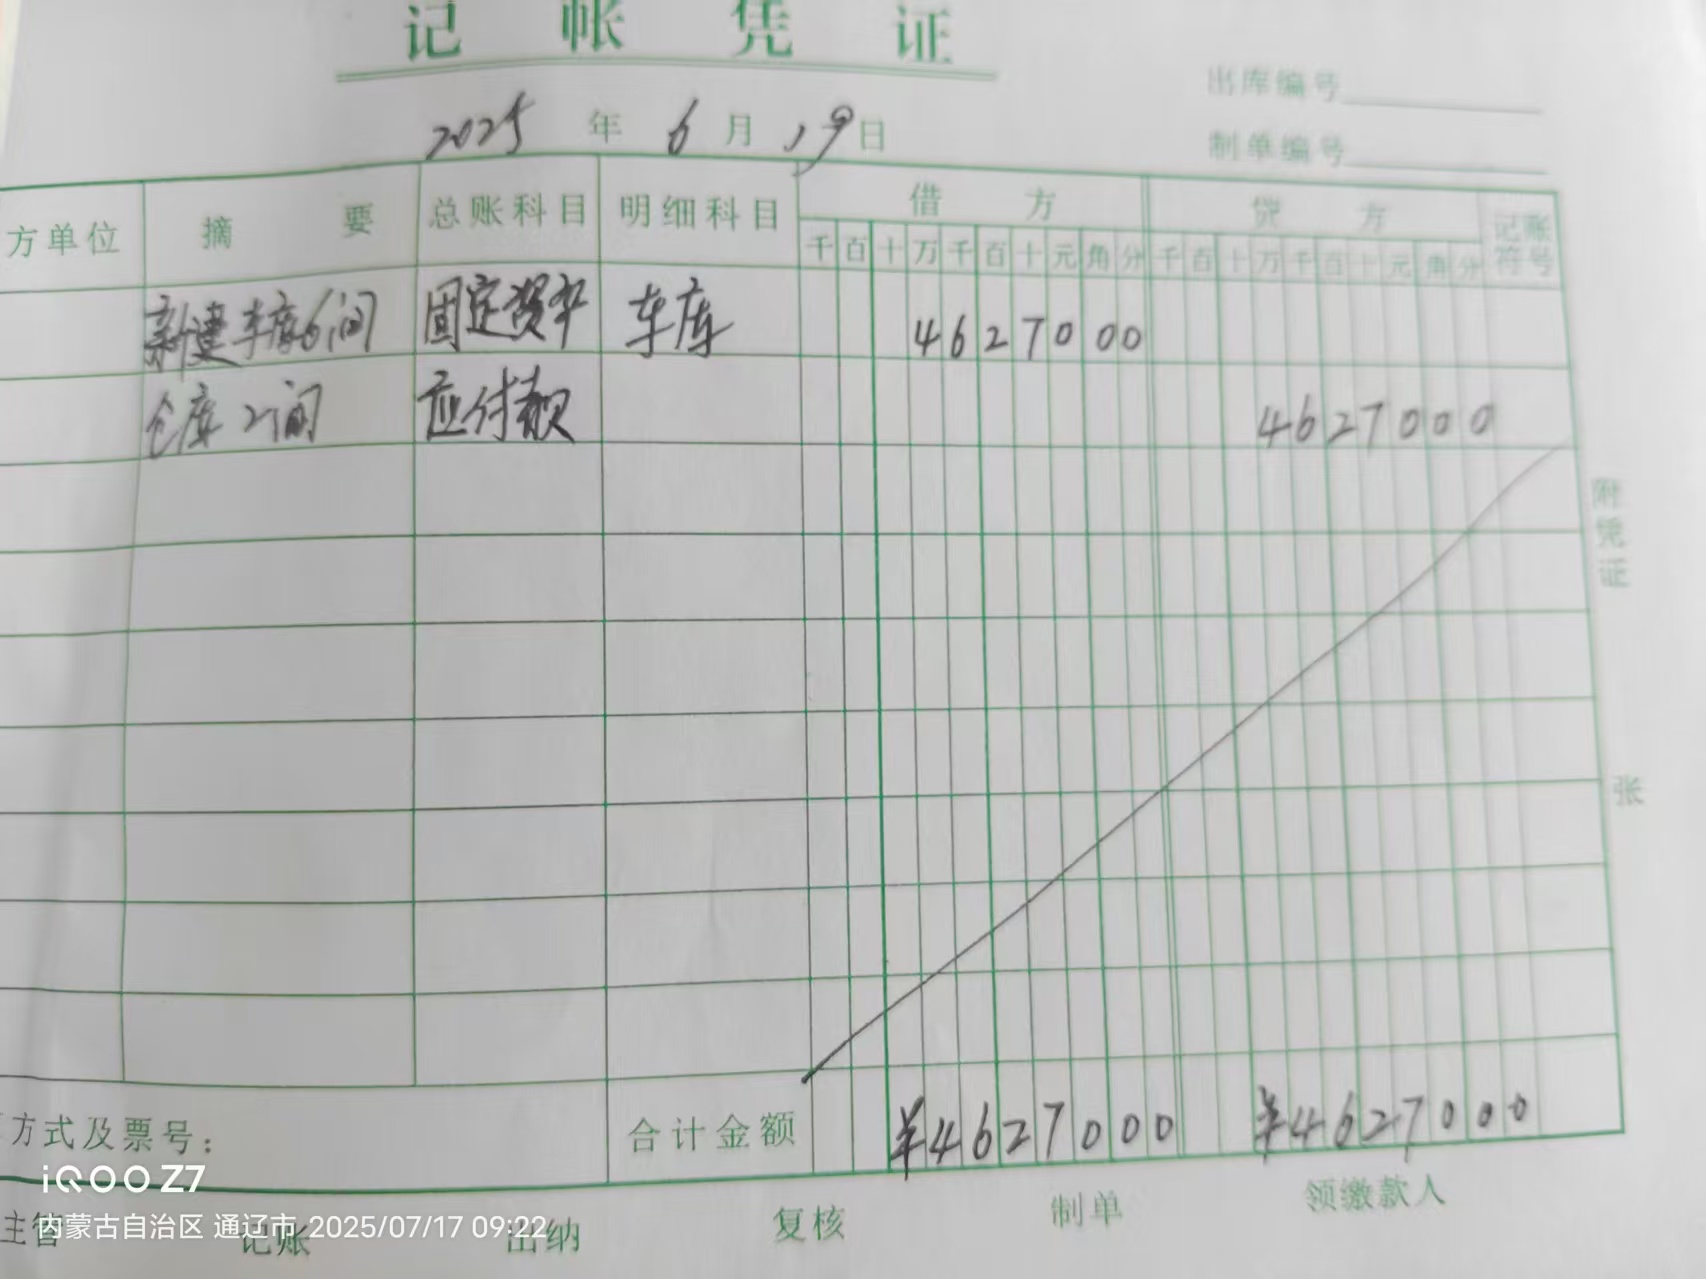 记帐凭证
出库编号
2025年6月19日
制单编号
方单位 摘要 总账科目 明细科目 借方 贷方 记账符号
千百十万千百十元角分 千百十万千百十元角分
新建车库6间 固定资产 车库 4627000
仓库2间 应付款 4627000
附凭证
张
方式及票号: 合计金额 ¥4627000 ¥4627000
iQOO Z7
主管 记账 出纳 复核 制单 领缴款人
内蒙古自治区 通辽市 2025/07/17 09:22